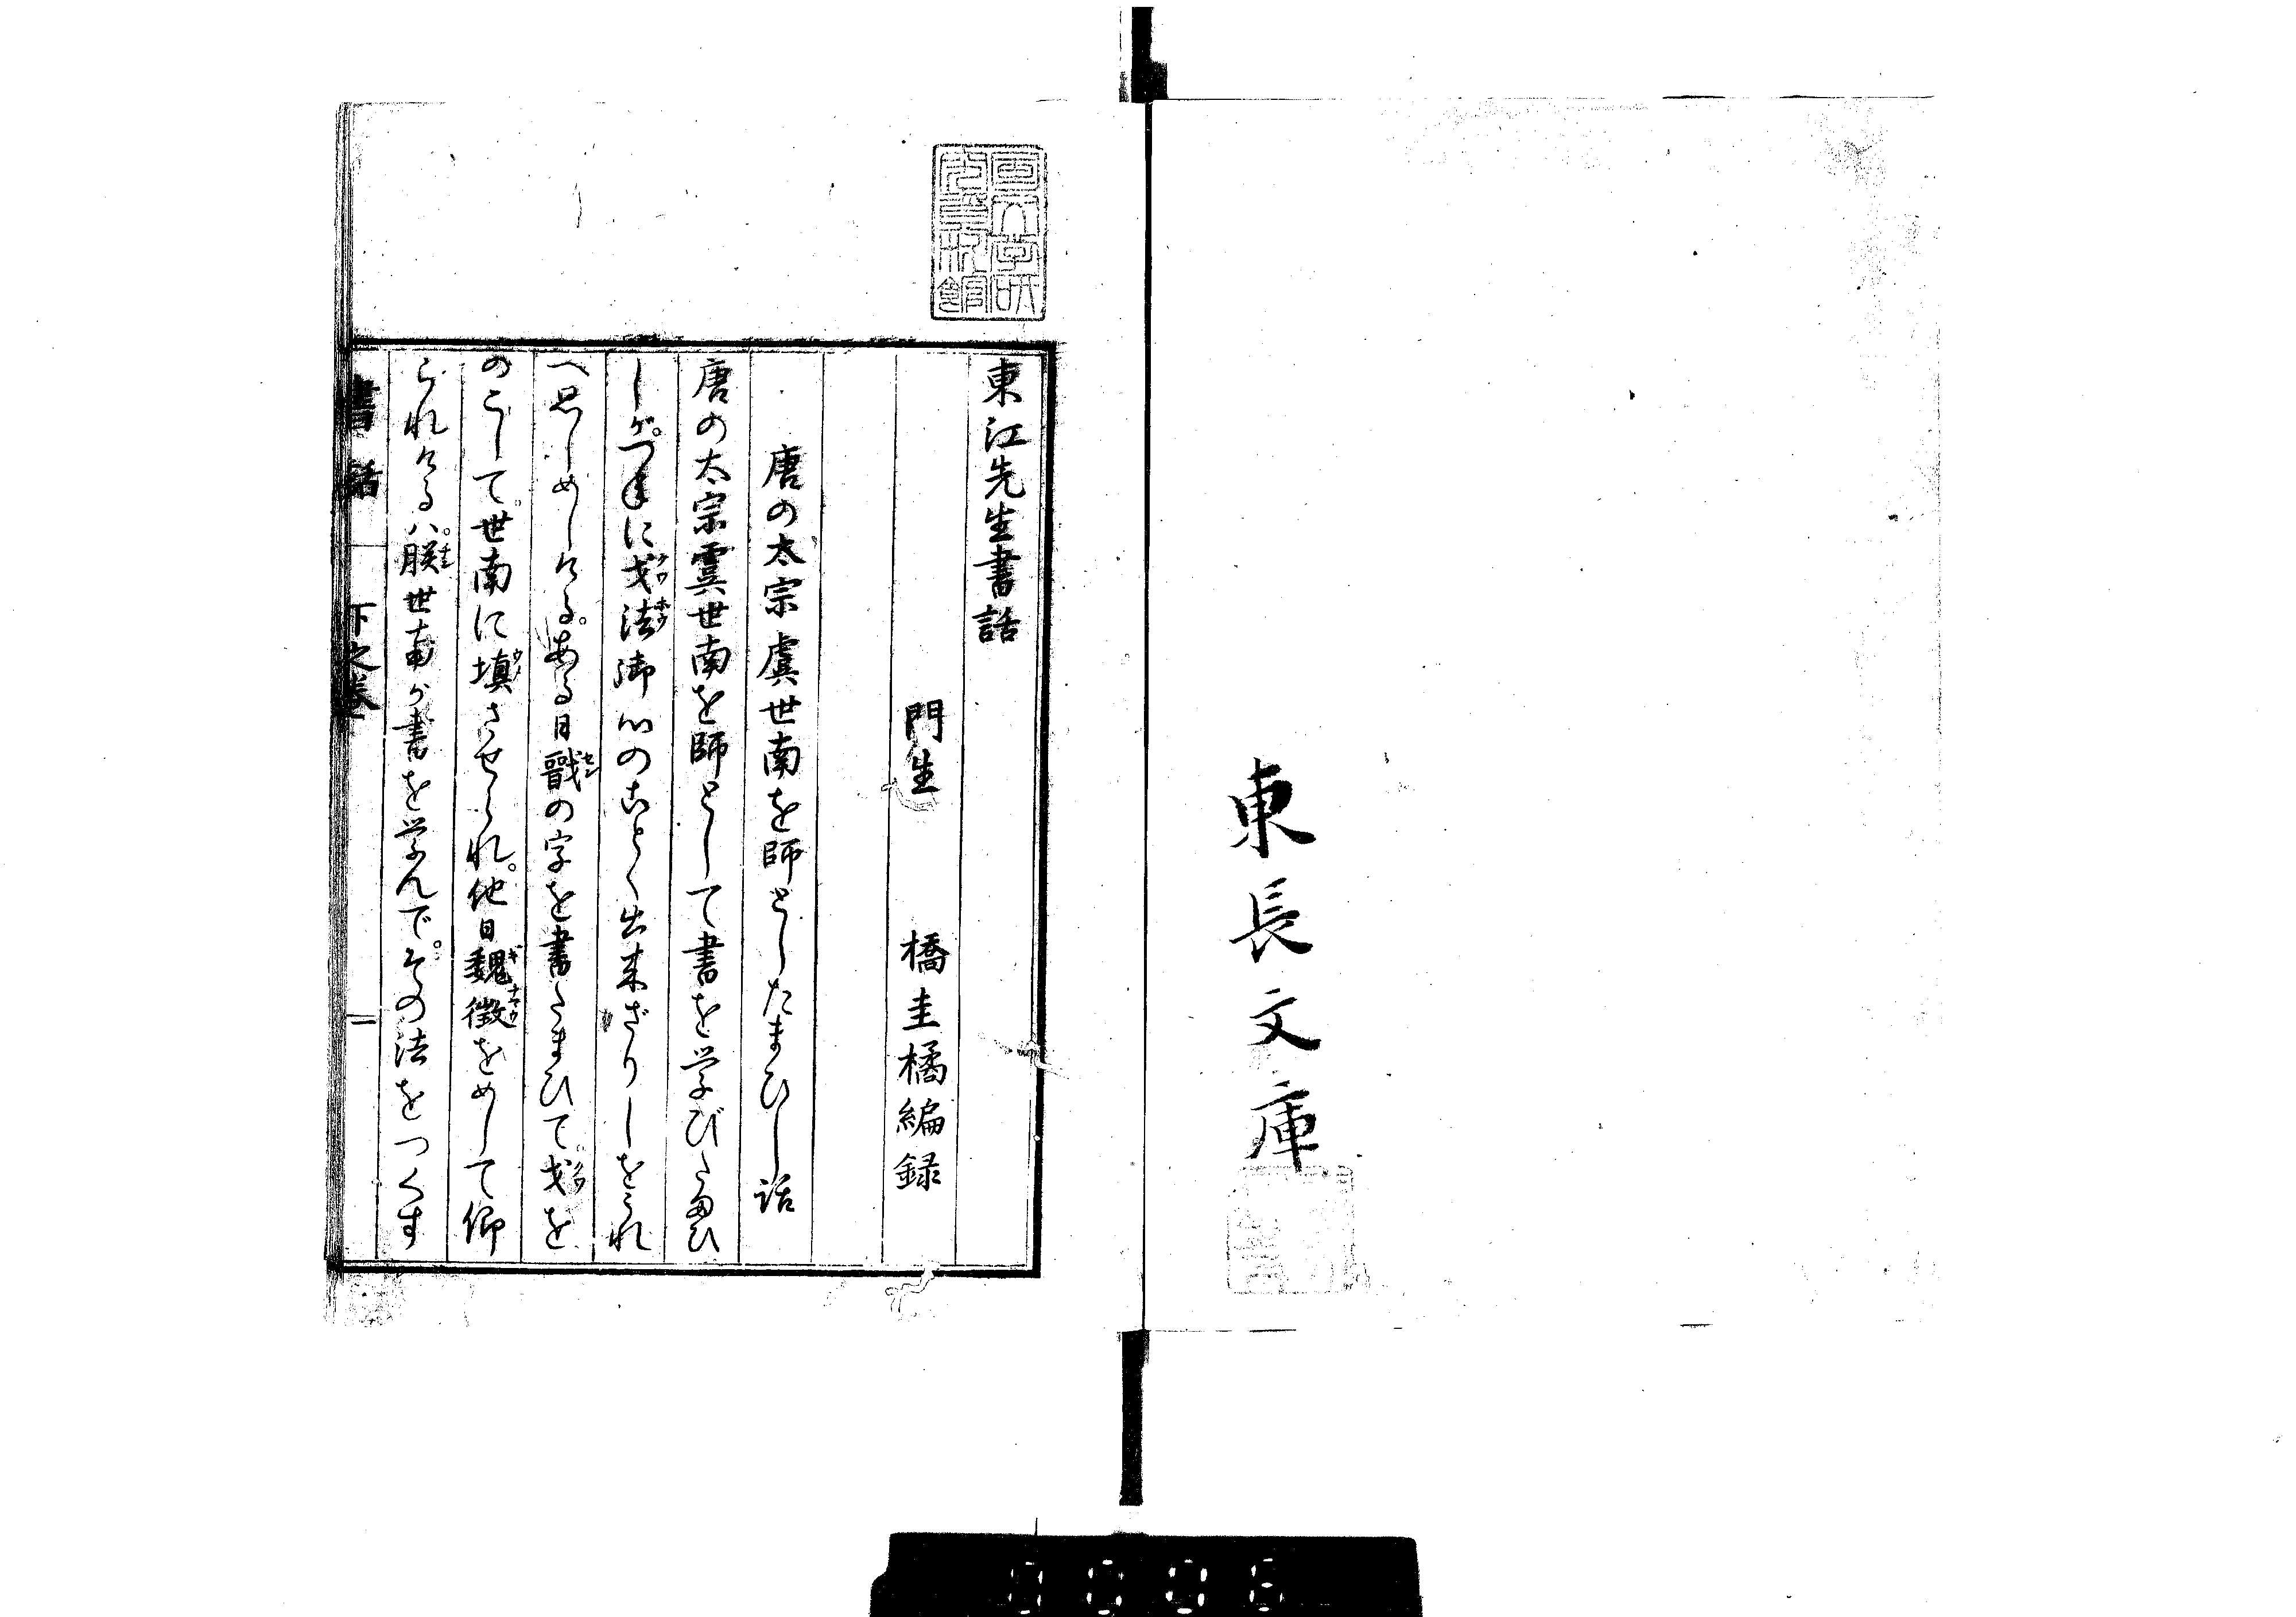 東長文庫
東江先生書話
門生 橋圭橘編録
唐の太宗虞世南を師としたまひし話
唐の太宗虞世南を師として書を学びたまひ
しが。つねに戈法御心のごとく出来ざりしをうれ
へ思しめしける。ある日戩の字を書たまひて。戈を
のこして。世南に塡させられ。他日魏徴をめして仰
られけるハ。朕世南が書を学んで。その法をつくす
書話 下之巻 一